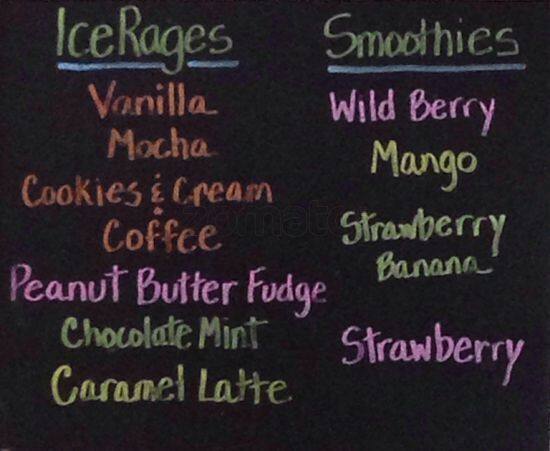 IceRages
Vanilla
Mocha
Cookies & Cream
Coffee
Peanut Butter Fudge
Chocolate Mint
Caramel Latte
Smoothies
Wild Berry
Mango
Strawberry
Banana
Strawberry
zomato